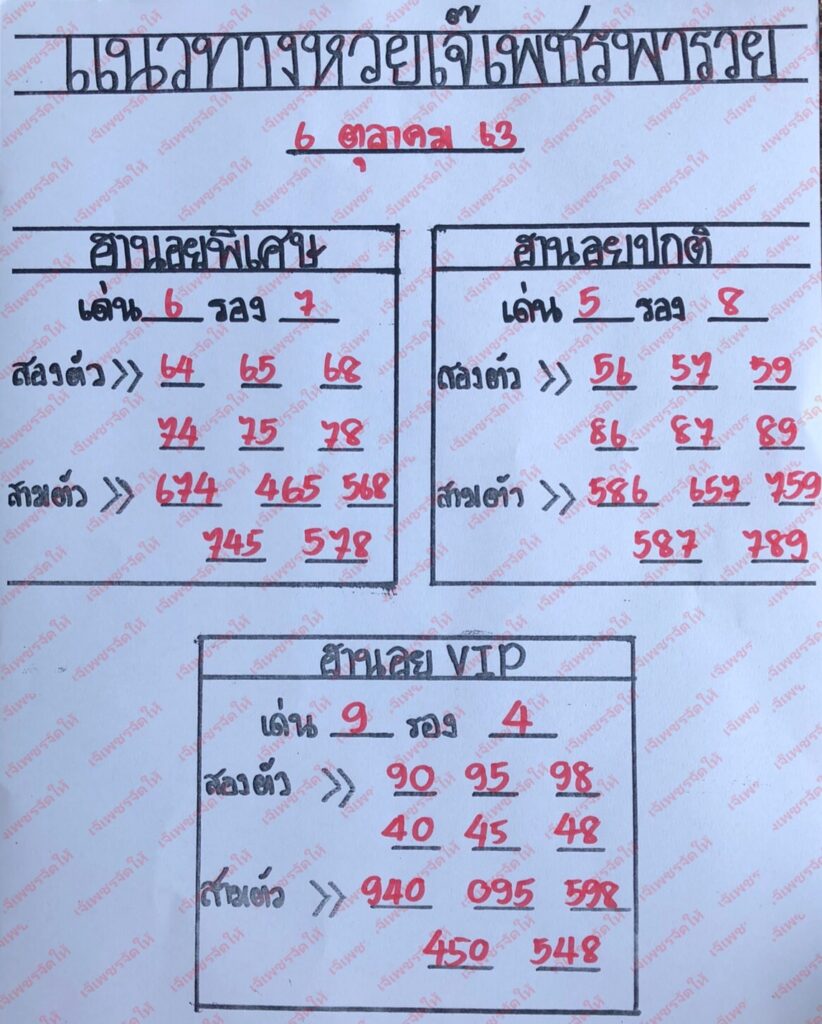 แนวทางหวยเจ๊เพชรพารวย
6 ตุลาคม 63
ฮานอยพิเศษ
เด่น 6 รอง 7
สองตัว >> 64 65 68
74 75 78
สามตัว >> 674 465 568
745 578
ฮานอยปกติ
เด่น 5 รอง 8
สองตัว >> 56 57 59
86 87 89
สามตัว >> 586 657 759
587 789
ฮานอย VIP
เด่น 9 รอง 4
สองตัว >> 90 95 98
40 45 48
สามตัว >> 940 095 598
450 548
เจ๊เพชรจัดให้